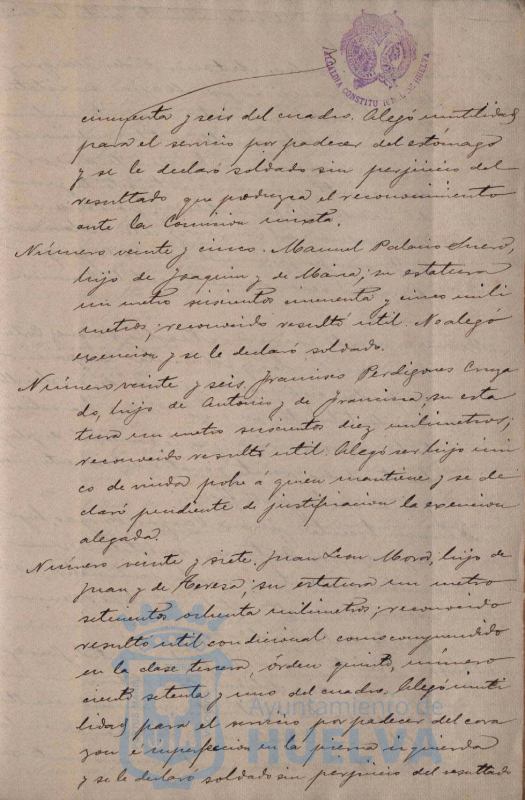 ALCALDIA CONSTITUCIONAL DE HUELVA
cincuenta y seis del cuadro. Alegó inutilidad
para el servicio por padecer del estómago
y se le declaró soldado sin perjuicio del
resultado que produzca el reconocimiento
ante la Comision mixta.
Número veinte y cinco. Manuel Palacio Suero,
hijo de Joaquin y de Maria; su estatura
un metro seiscientos cincuenta y cinco mili
metros; reconocido resultó util. No alegó
exencion y se le declaró soldado.
Número veinte y seis, Francisco Perdigones Cruza
do, hijo de Antonio y de Francisca; su esta
tura un metro seiscientos diez milimetros;
reconocido resultó util. Alegó ser hijo úni
co de viuda pobre á quien mantiene y se de
claró pendiente de justificacion la exencion
alegada.
Número veinte y siete, Juan Leon Mora, hijo de
Juan y de Teresa; su estatura un metro
setecientos ochenta milimetros; reconocido
resultó util condicional como comprendido
en la clase tercera, órden quinto, número
ciento setenta y uno del cuadro. Alegó inuti
lidad para el servicio por padecer del cora
zon e imperfeccion en la pierna izquierda
y se le declaró soldado sin perjuicio del resultado
Ayuntamiento de
HUELVA